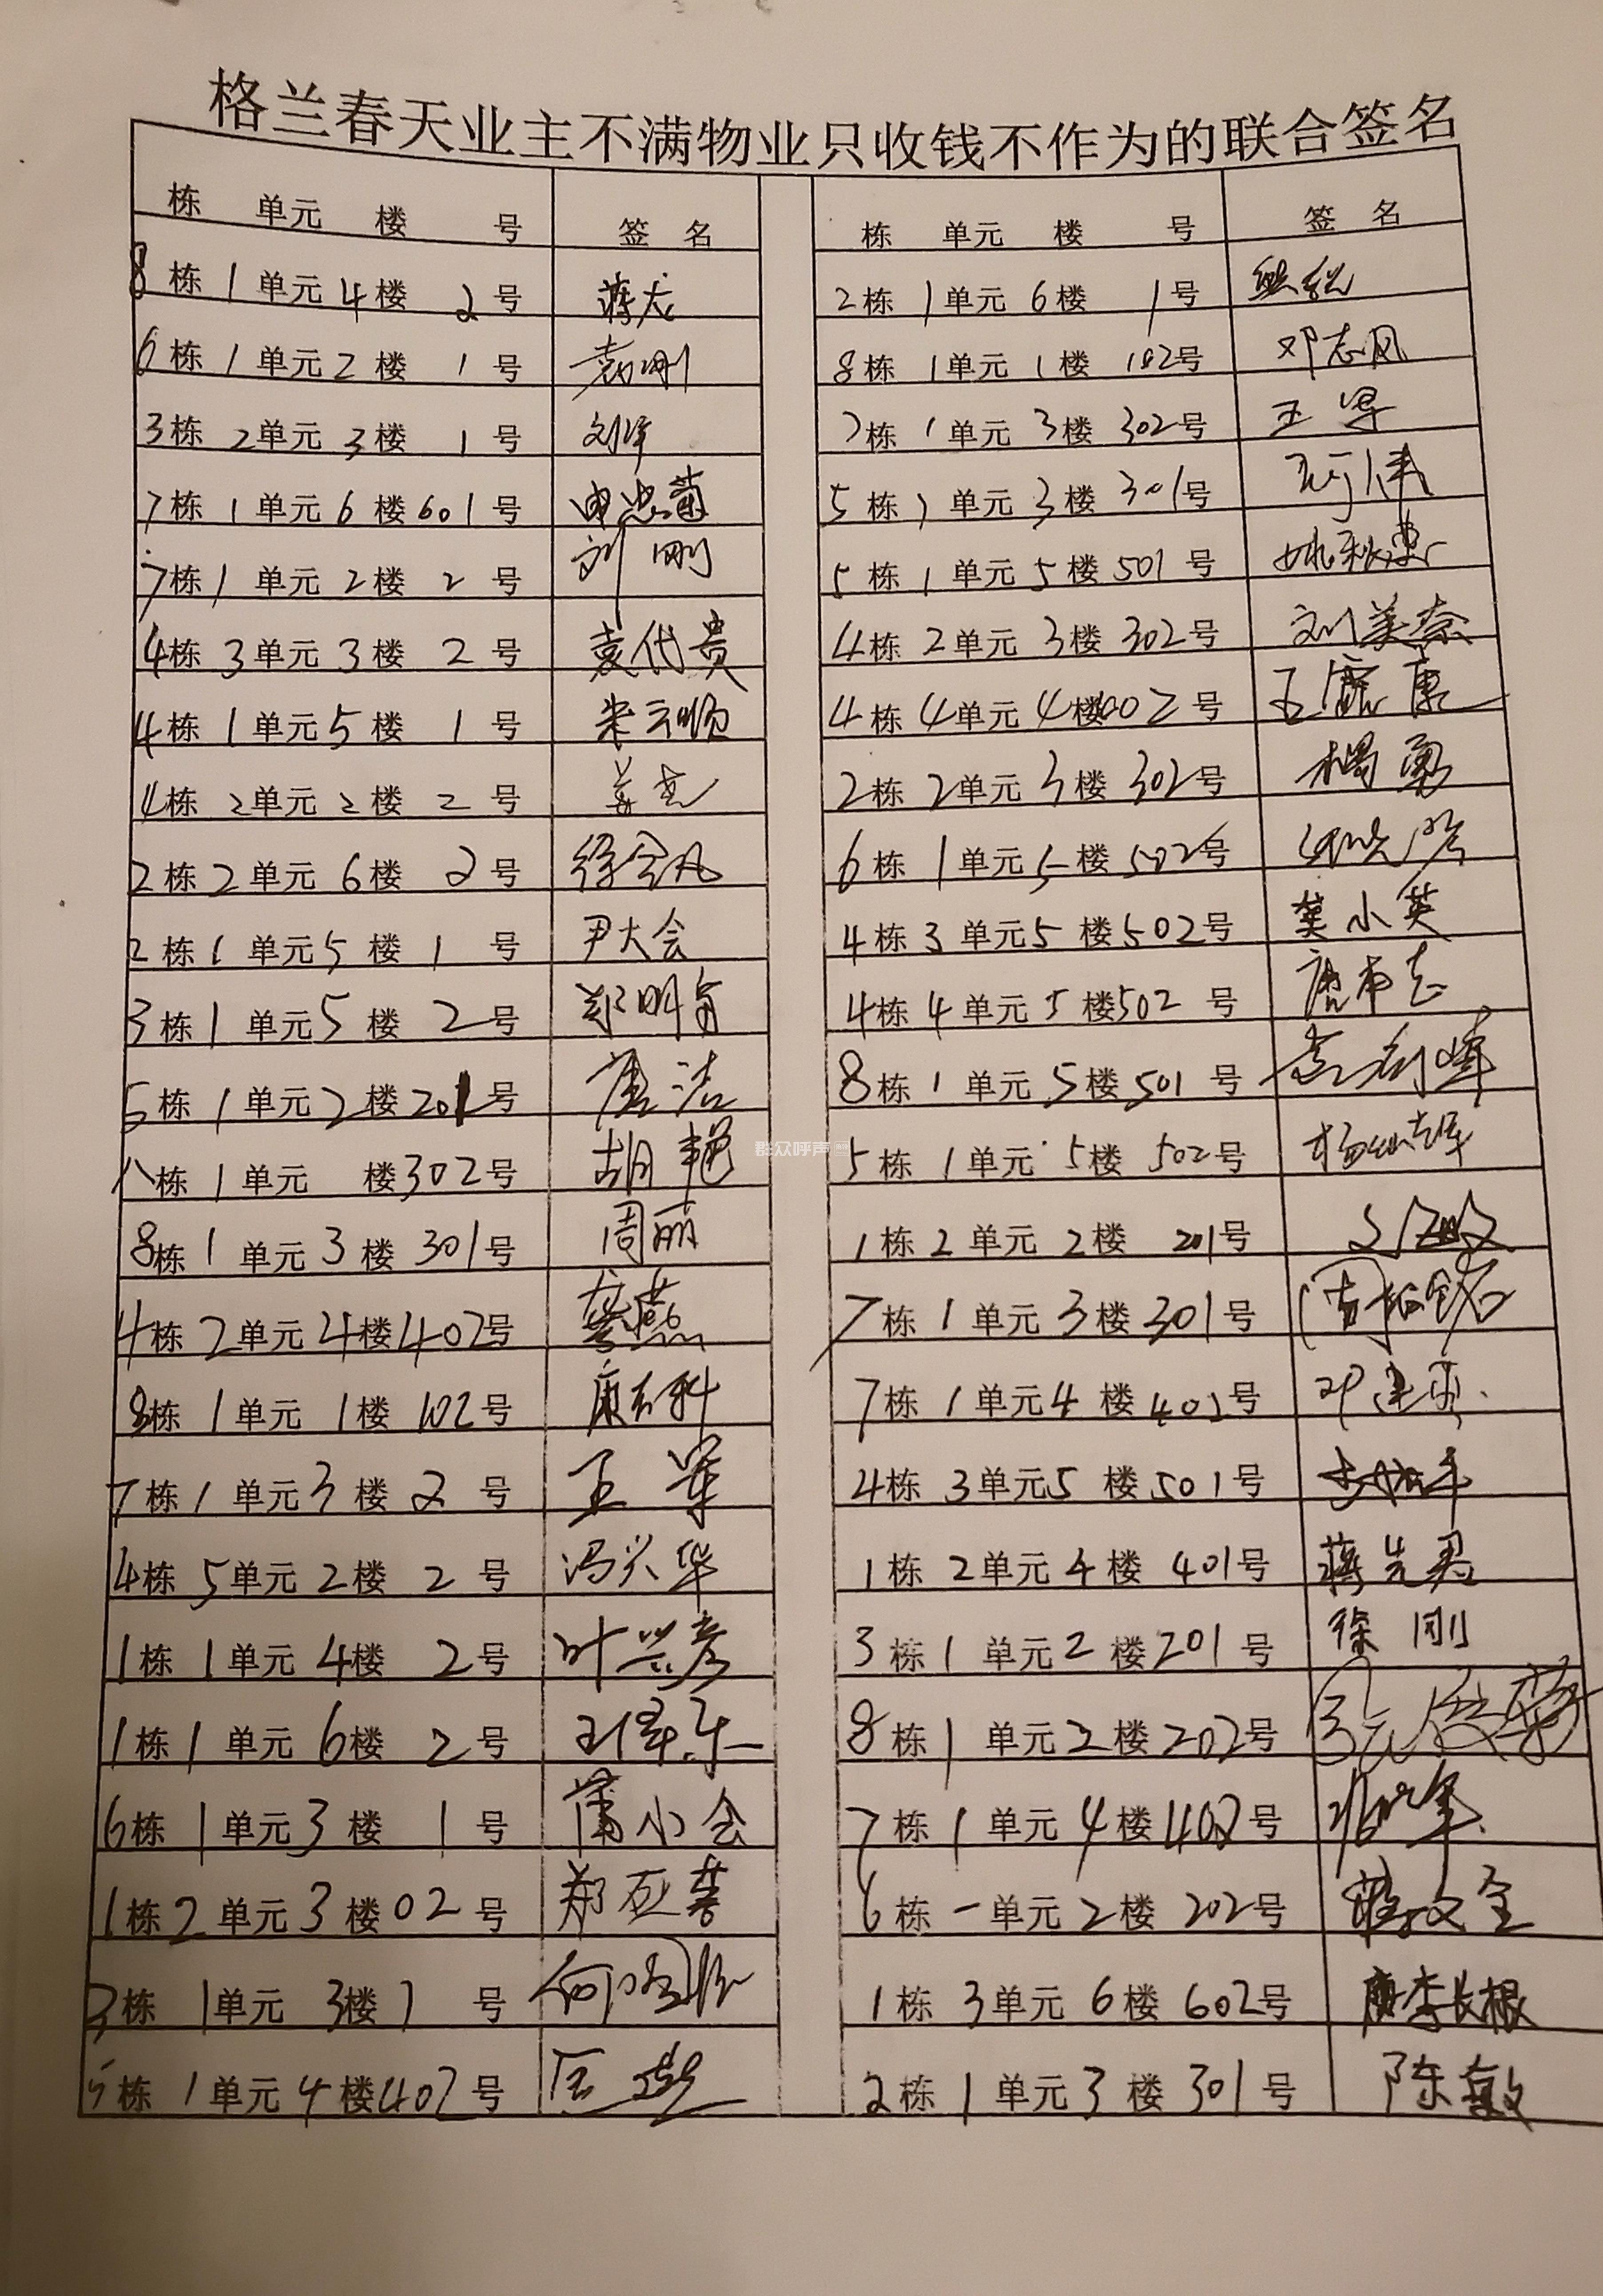 格兰春天业主不满物业只收钱不作为的联合签名
栋 单元 楼 号 签 名
8栋 1单元 4楼 2号 蒋龙
6栋 1单元 2楼 1号 袁刚
3栋 2单元 3楼 1号
7栋 1单元 6楼 601号 申忠菊
7栋 1单元 2楼 2号 刘刚
4栋 3单元 3楼 2号 袁代贵
4栋 1单元 5楼 1号
4栋 2单元 2楼 2号
2栋 2单元 6楼 2号 徐会凡
2栋 1单元 5楼 1号 尹大会
3栋 1单元 5楼 2号 郑明
5栋 1单元 2楼 201号 唐洁
八栋 1单元 楼 302号 胡艳
8栋 1单元 3楼 301号 周丽
4栋 2单元 4楼 402号 燕
8栋 1单元 1楼 102号 科
7栋 1单元 3楼 2号 王军
4栋 5单元 2楼 2号 冯兴华
1栋 1单元 4楼 2号 叶兴彦
1栋 1单元 6楼 2号
6栋 1单元 3楼 1号 蒲小会
1栋 2单元 3楼 02号 郑
3栋 1单元 3楼 1号 何
5栋 1单元 4楼 402号
栋 单元 楼 号 签 名
2栋 1单元 6楼 1号
8栋 1单元 1楼 102号 邓志风
7栋 1单元 3楼 302号 王
5栋 1单元 3楼 301号
5栋 1单元 5楼 501号 姚秋
4栋 2单元 3楼 302号 刘美
4栋 4单元 4楼 402号 王
2栋 2单元 3楼 302号 杨勇
6栋 1单元 5楼 502号
4栋 3单元 5楼 502号 龚小英
4栋 4单元 5楼 502号
8栋 1单元 5楼 501号 峰
5栋 1单元 5楼 502号 杨
1栋 2单元 2楼 201号
7栋 1单元 3楼 301号
7栋 1单元 4楼 402号 邓
4栋 3单元 5楼 501号
1栋 2单元 4楼 401号 蒋先君
3栋 1单元 2楼 201号 徐刚
8栋 1单元 2楼 202号
7栋 1单元 4楼 402号
6栋 一单元 2楼 202号 文全
1栋 3单元 6楼 602号 李长根
2栋 1单元 3楼 301号 陈敏
群众呼声